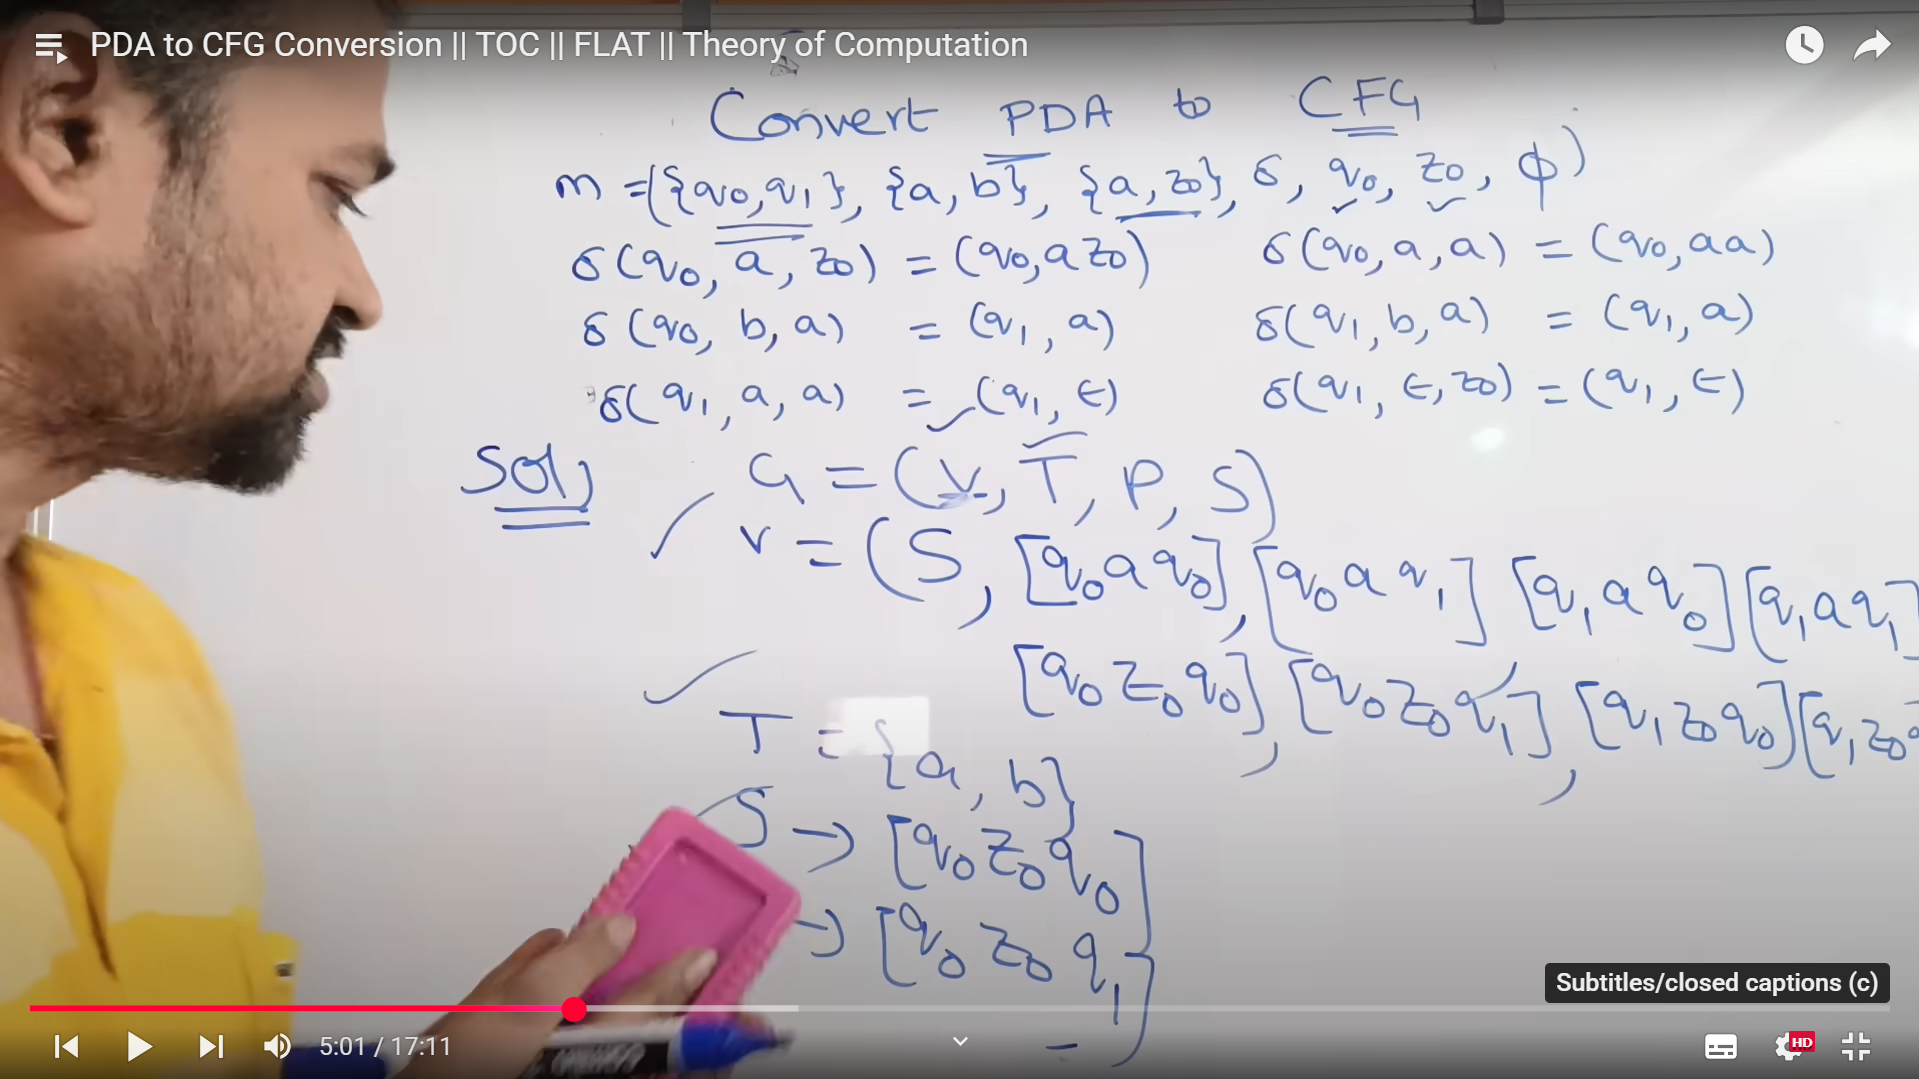 PDA to CFG Conversion || TOC || FLAT || Theory of Computation
Convert PDA to CFG
m = ({q0,q1}, {a, b}, {a, z0}, δ, q0, z0, ϕ)
δ(q0, a, z0) = (q0, a z0) δ(q0, a, a) = (q0, aa)
δ(q0, b, a) = (q1, a) δ(q1, b, a) = (q1, a)
δ(q1, a, a) = (q1, ϵ) δ(q1, ϵ, z0) = (q1, ϵ)
Sol) G = (V, T, P, S)
V = (S, [q0 a q0], [q0 a q1] [q1 a q0] [q1 a q1]
[q0 z0 q0], [q0 z0 q1], [q1 z0 q0] [q1 z0
T = {a, b}
S → [q0 z0 q0]
→ [q0 z0 q1]
Subtitles/closed captions (c)
5:01 / 17:11
HD